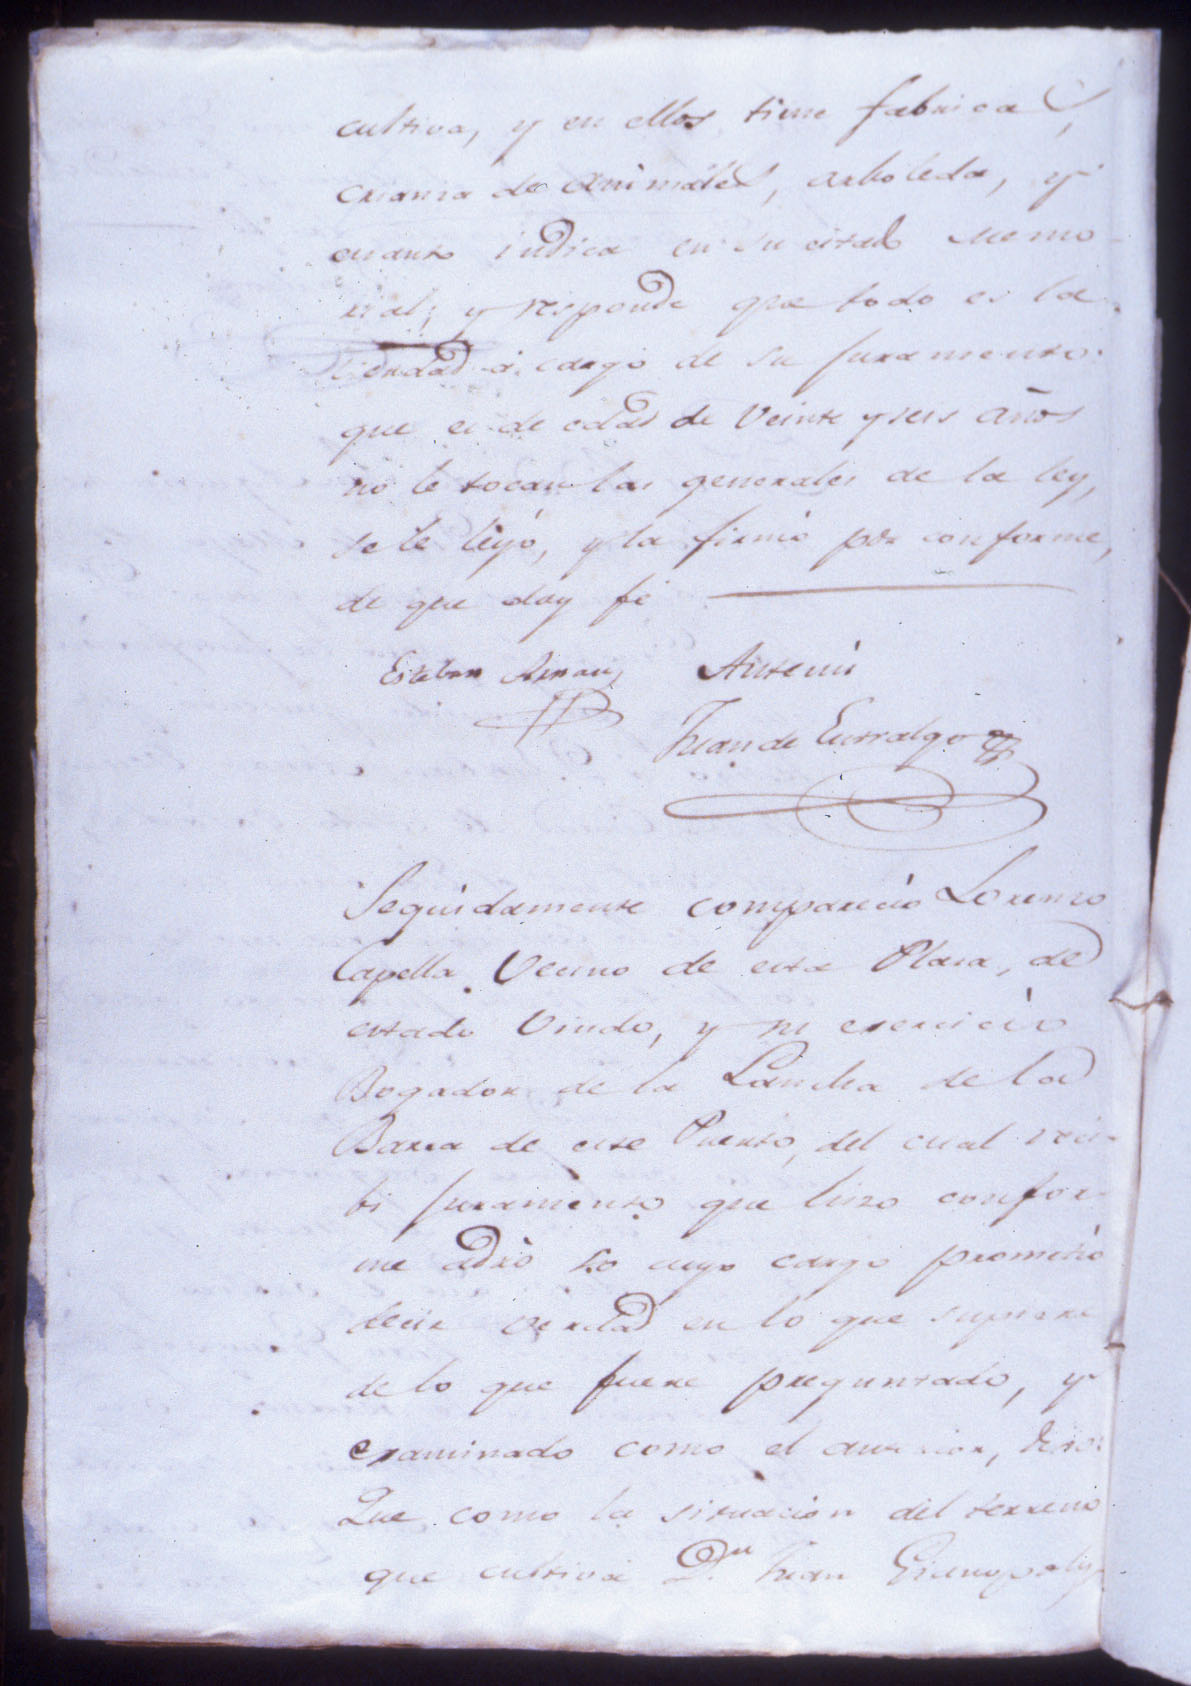 cultiva, y en ellos tiene fabrica,
crianza de animales, arboleda, y
cuanto indica en su citado memo
rial; y responde que todo es la
verdad á cargo de su juramento:
que es de edad de veinte y seis años
no le tocan las generales de la ley,
se le leyó, y la firmó por conforme,
de que doy fé
Esteban Arnau Antemi
Juan de Entralgo
Seguidamente compareció Lorenzo
Capella Vecino de esta Plaza, de
estado Viudo, y su exercicio
Bogador de la Lancha de la
Barra de este Puerto, del cual reci-
bi juramento que hizo confor-
me adró so cuyo cargo prometió
decir verdad en lo que supiere
de lo que fuere preguntado, y
examinado como el anterior, dixo:
Que como la situacion del terreno
que cultiva Dn. Juan Gianopoly